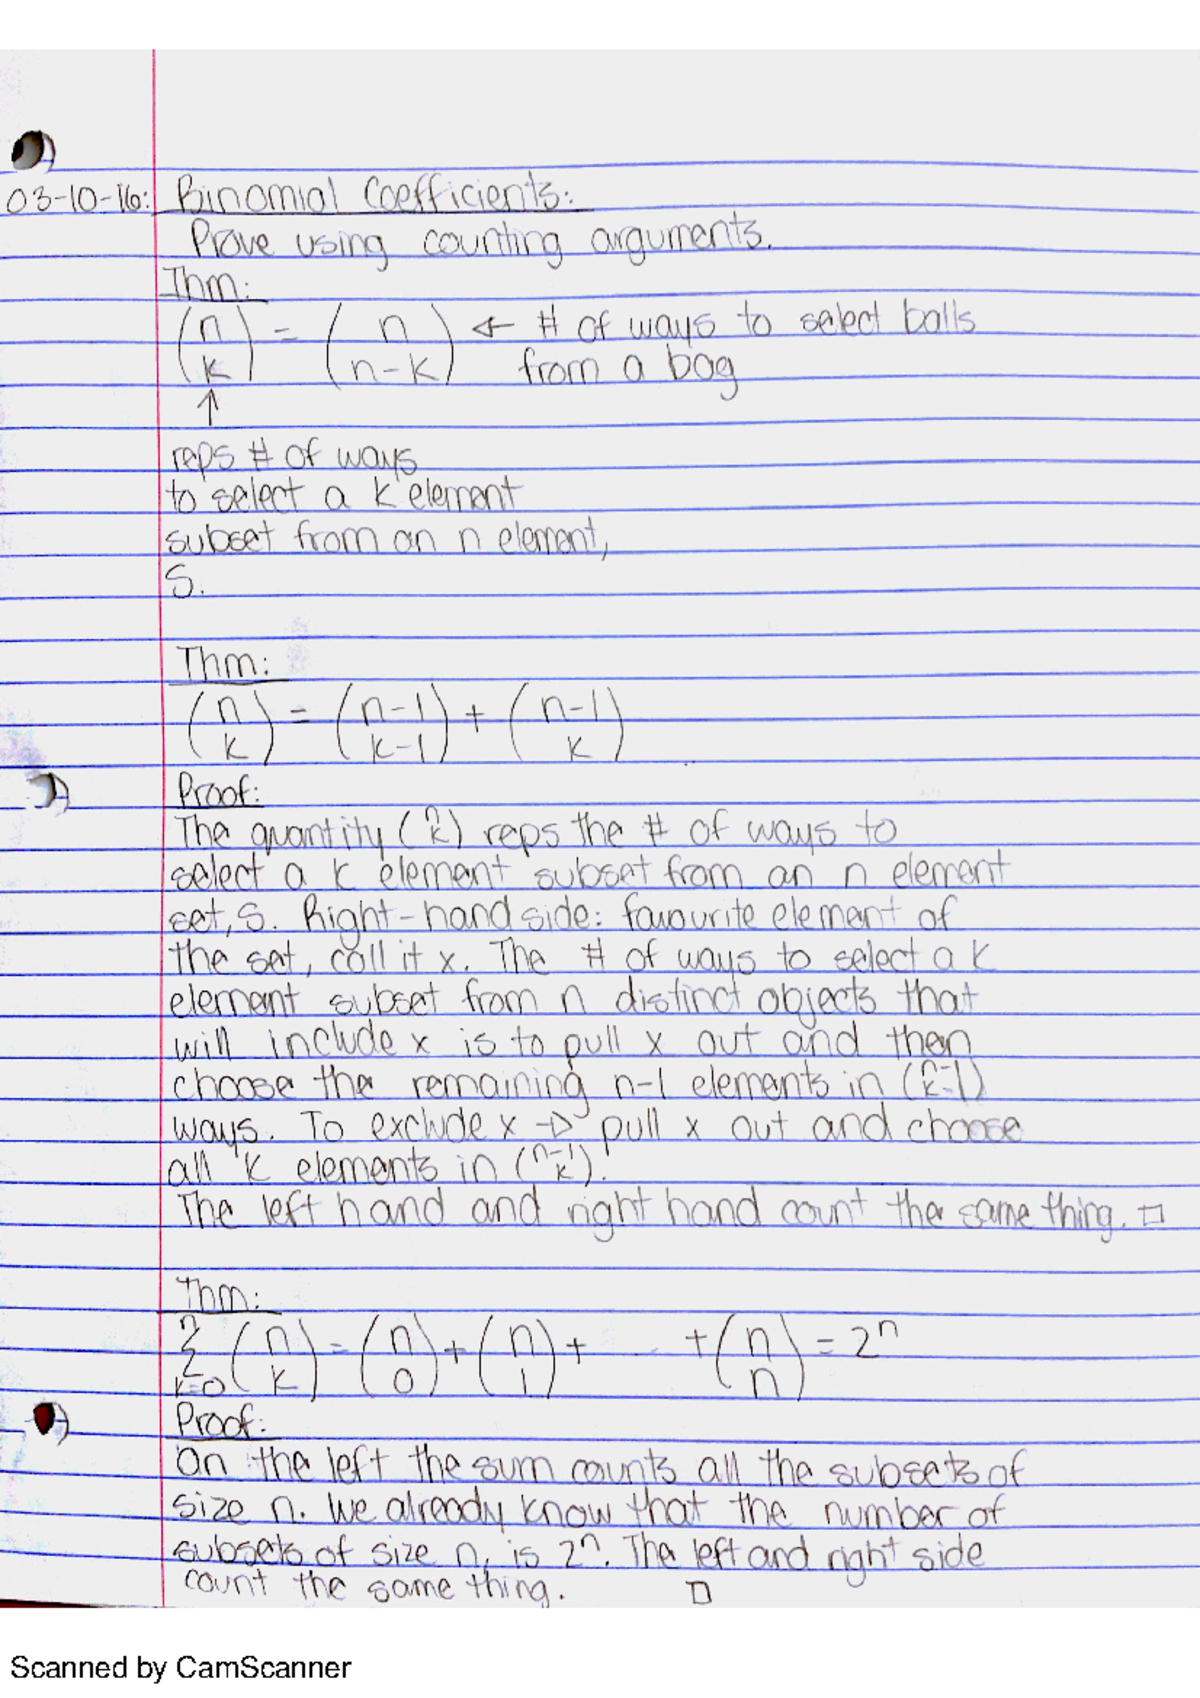 03-10-16: Binomial Coefficients:
Prove using counting arguments.
Thm:
(n k) = (n n-k) ← # of ways to select balls
from a bag
↑
reps # of ways
to select a k element
subset from an n element,
S.
Thm:
(n k) = (n-1 k-1) + (n-1 k)
Proof:
The quantity (n k) reps the # of ways to
select a k element subset from an n element
set, S. Right-hand side: favourite element of
the set, call it x. The # of ways to select a k
element subset from n distinct objects that
will include x is to pull x out and then
choose the remaining n-1 elements in (n-1 k-1)
ways. To exclude x → pull x out and choose
all k elements in (n-1 k).
The left hand and right hand count the same thing. □
Thm:
n Σ k=0 (n k) = (n 0) + (n 1) + ... + (n n) = 2ⁿ
Proof:
On the left the sum counts all the subsets of
size n. We already know that the number of
subsets of size n, is 2ⁿ. The left and right side
count the same thing. □
Scanned by CamScanner